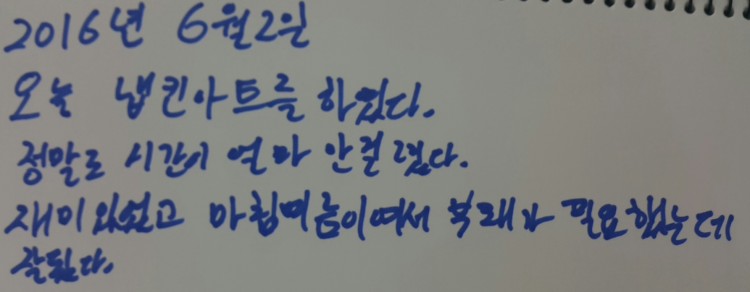 2016년 6월2일
오늘 냅킨아트를 하였다.
정말로 시간이 얼마 안걸렸다.
재미있었고 마침여름이여서 부채가 필요했는데
잘됐다.